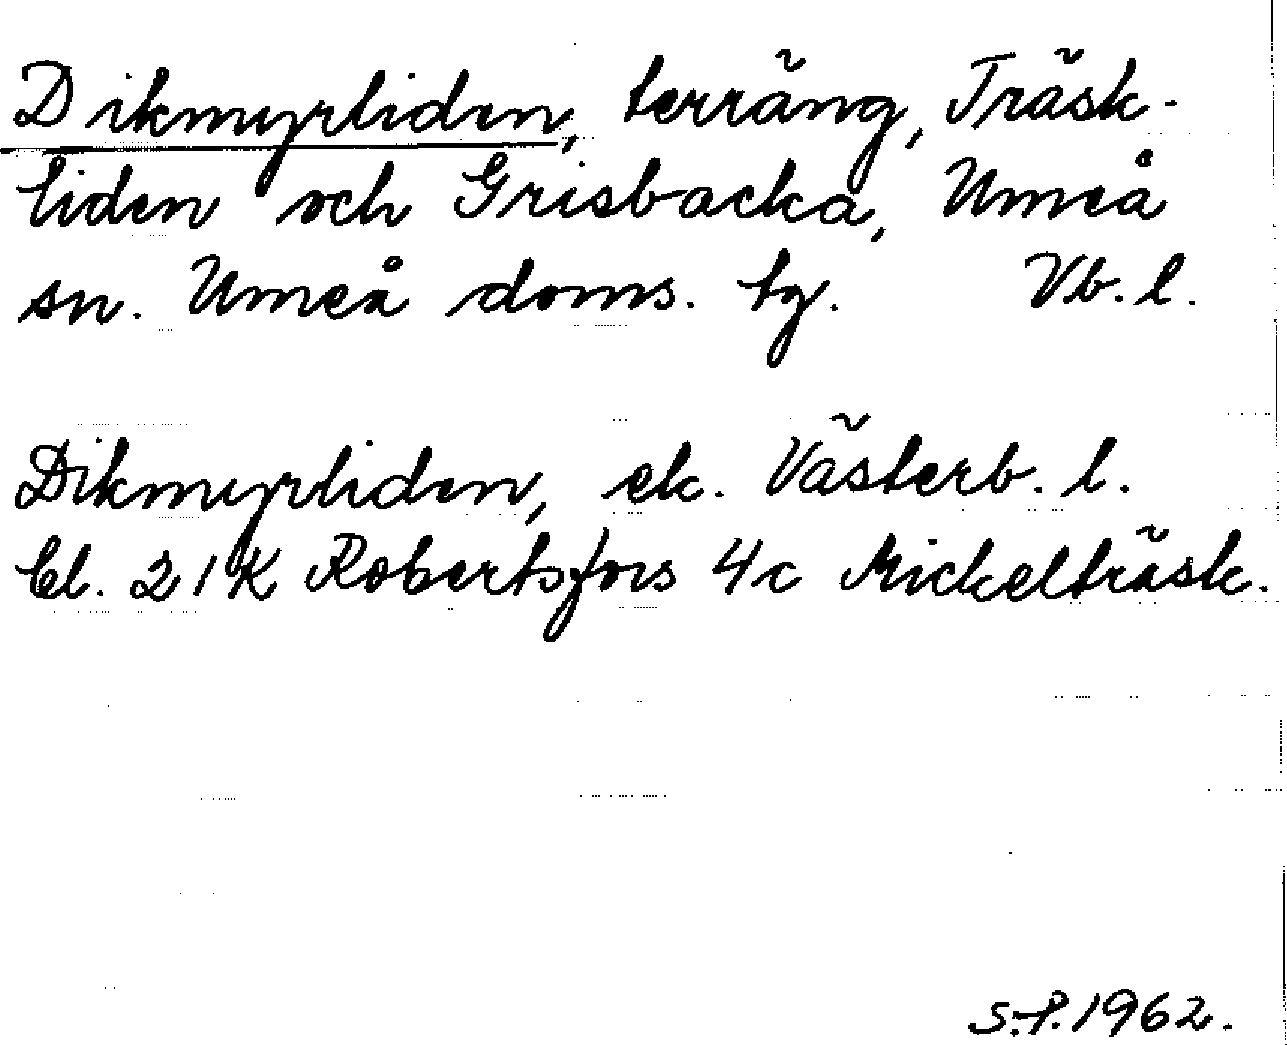 Dikmyrliden, terräng, Träsk-
liden och Grisbacka, Umeå
sn. Umeå doms. tg. Vb. l.
Dikmyrliden, ek. Västerb. l.
Bl. 21K Robertsfors 4c Mickelträsk.
1962.